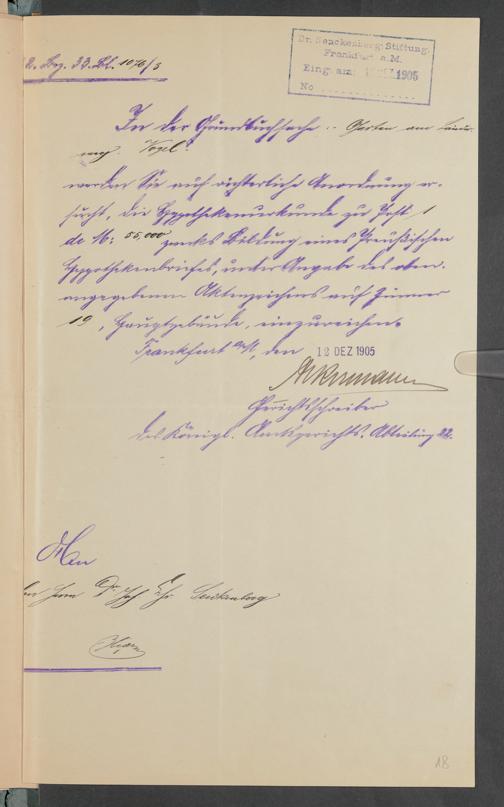 Dr. Senckenberg. Stiftung.
Frankfurt a.M.
Eing. am: DEZ 1905
No
2. Bez. 33. Bl. 1076/3
In der Grundbuchsache Garten am
Vogel
werden Sie auf richterliche Anordnung er-
sucht, die Hypothekenurkunde zu Post 1
de M: 55,000 zwecks Bildung eines Preußischen
Hypothekenbriefes, unter Angabe des oben-
angegebenen Aktenzeichens auf Zimmer
19, Hauptgebäude, einzureichen.
Frankfurt a/M, den 12 DEZ 1905
Ackermann
Gerichtsschreiber
des Königl. Amtsgerichts. Abteilung 22.
An
Herrn Dr Joh Chr. Senckenberg
Hier
18